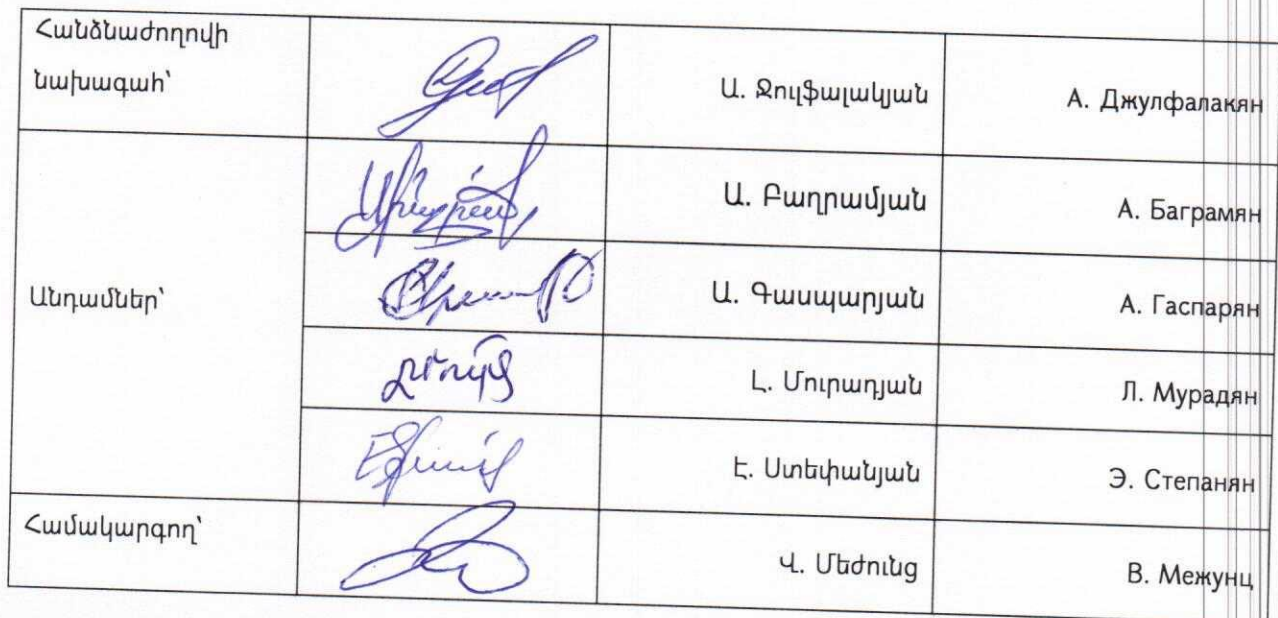 Հանձնաժողովի
նախագահ՝
Ա. Ջուլֆալակյան
А. Джулфалакян
Ա. Բաղրամյան
А. Баграмян
Անդամներ՝
Ա. Գասպարյան
А. Гаспарян
Լ. Մուրադյան
Л. Мурадян
Է. Ստեփանյան
Э. Степанян
Համակարգող՝
Վ. Մեժունց
В. Межунц